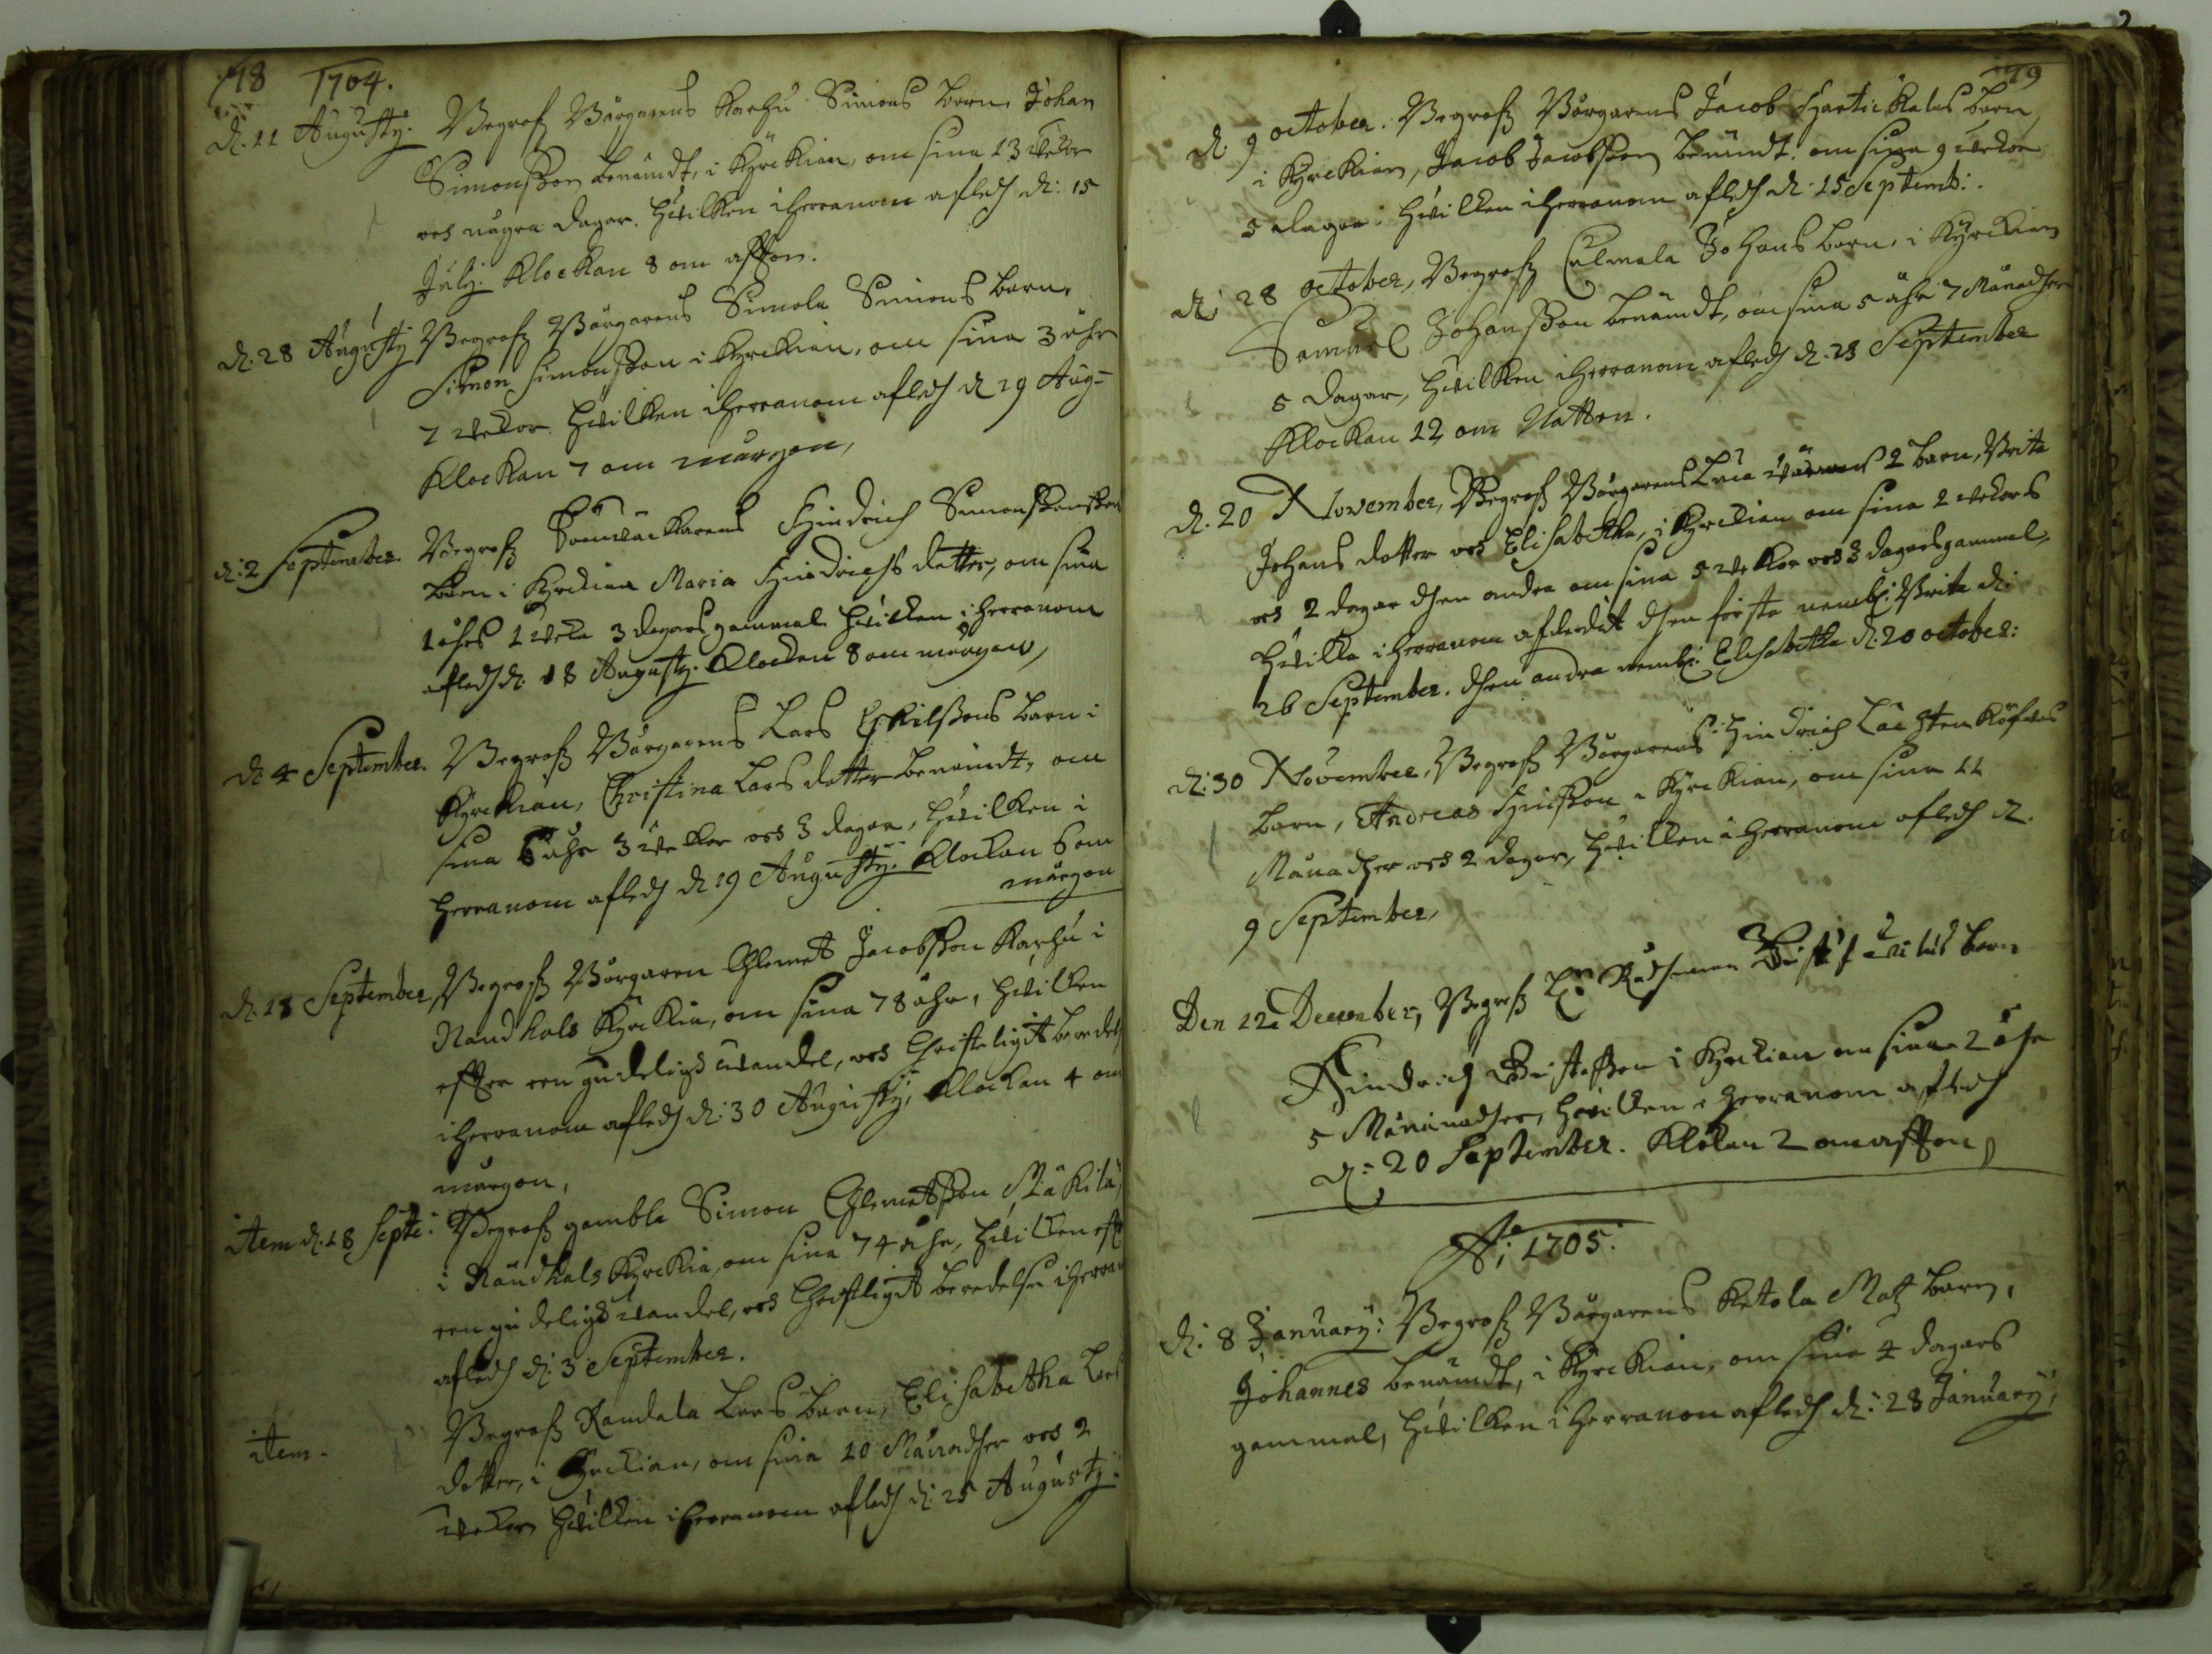 78 1704.
d. 11 Augusty. Begrofz Börgarens Karhu Simons barn, Johan
Simonsson benämdt, i Kyrckian, om sina 13 wekor
och några dagar. hwilken i herranom afledh d: 15
July. Klockan 8 om afton.
d. 28 Augusty Begrofz Börgarens Simola Simons barn,
Simon Simonsson i Kyrckian, om sina 3 åhr
7 wekor hwilken i herranom afledh d 19 Aug-
Klockan 7 om morgon,
d: 2 September. Begrofz Hindrich Simonssons
barn i Kyrckian Maria Hindrichs dotter, om sina
1 åhrs 1 weka 3 dagars gammal hwilken i herranom
afledh d. 18 Augusty. Klockan 8 om morgon,
d: 4 September. Begrofz Börgarens Lars Eskilssons barn i
Kyrckian, Christina Lars dotter benämdt, om
sina 6 åhr 3 wekor och 3 dagar, hwilken i
herranom afledh d 19 Augusty. Klockan 6 om
morgon
d. 18 September, Begrofz Börgaren Clemet Jacobsson Karhu i
Naudhals Kyrckia, om sina 78 åhr, hwilken
efter een gudeligh wandel, och Christeligit beredels
i herranom afledh d: 30 Augusty, Klockan 4 om
morgon,
item d. 18 Septe: Begrofz gamble Simon Clemetsson Mäkilä,
i Naudhals Kyrckia, om sina 74 åhr, hwilken eft
een gudeligh wandel, och Christligit beredelse i herran
afledh d: 3 September.
item. Begrofz Randala Lars barn, Elisabetha Lars
dotter, i Kyrckian, om sina 10 Månadher och 2
wekor hwilken i herranom afledh d: 25 Augusty:
79
d. 9 october. Begrofz Börgarens Jacob barn,
i Kyrckian, Jacob Jacobsson benämdt. om sina 9 wekor
5 dagar. hwilken i herranom afledh d. 15 Septemb:.
d: 28 october, Begrofz Culmala Johans barn, i Kyrckian
Samuel Johansson benämdt, om sina 5 åhr 7 Månadher
5 dagar, hwilken i herranom afledh d. 23 September
Klockan 12 om Natten.
d. 20 November, Begrofz Börgarens 2 barn, Brita
Johans dotter och Elisabetha, i Kyrckian om sina 2 wekors
och 2 dagar dhen andra om sina 5 wekor och 3 dagars gammal,
hwilka i herranom afledit dhen förste nembl: Brita d:
26 September. dhen andra nembl: Elisabetha d. 20 october:
d: 30 November, Begrofz Börgarens Hindrich
barn, Andreas i Kyrckian, om sina 11
Månadher och 2 dagar, hwilken i herranom afledh d.
9 September,
Den 12 December, Begrofz Rådhman barn
Hindrich i Kyrckian om sina 2 åhr
5 Månnadher, hwilken i herranom afledh
d: 20 September. Klokan 2 om afton,
A: 1705.
d: 8 January: Begrofz Börgarens Ketola Matz barn,
Johannes benämdt, i Kyrckian, om sina 4 dagars
gammal, hwilken i herranom afledh d: 28 January,